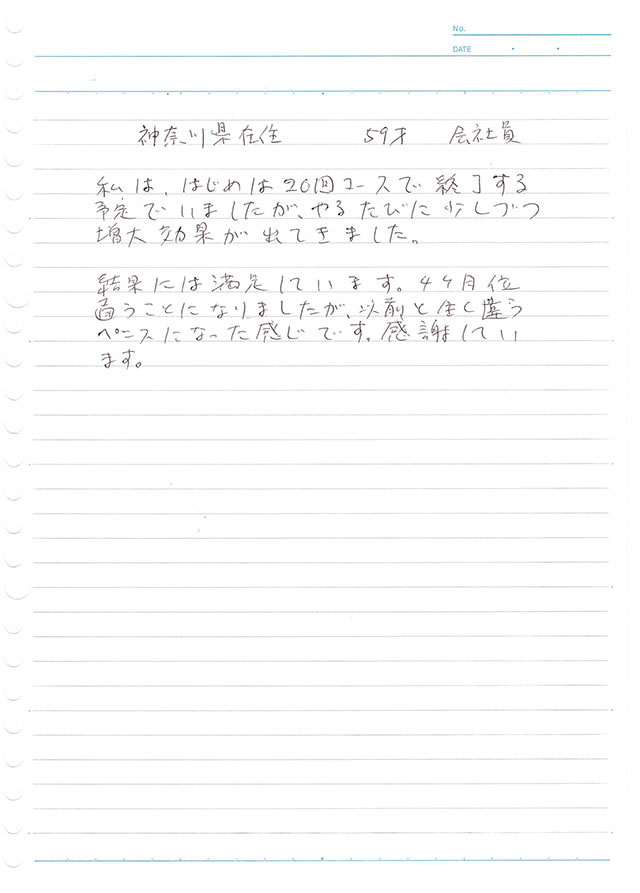 No.
DATE
神奈川県在住 59才 会社員
私は、はじめは20回コースで終了する
予定でいましたが、やるたびに少しづつ
増大効果が出てきました。
結果には満足しています。4ヶ月位
通うことになりましたが、以前と全く違う
ペニスになった感じです。感謝してい
ます。